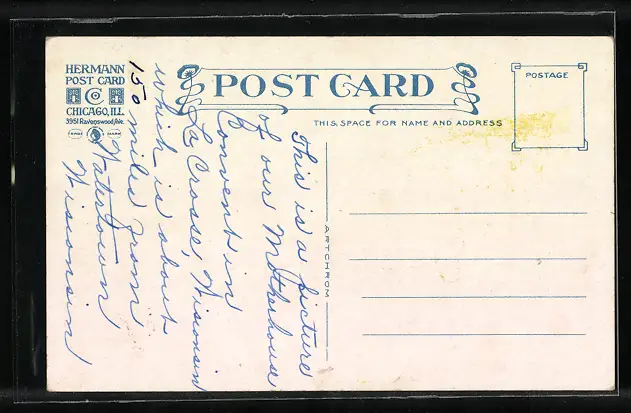 HERMANN
POST CARD
CO
CHICAGO, ILL.
3951 Ravenswood Ave.
TRADE MARK
POST CARD
POSTAGE
THIS SPACE FOR NAME AND ADDRESS
ARTCHROM
This is a picture
of our Motherhouse
Convent in
La Crosse, Wisconsin
which is about
150 miles from
Watertown
Wisconsin